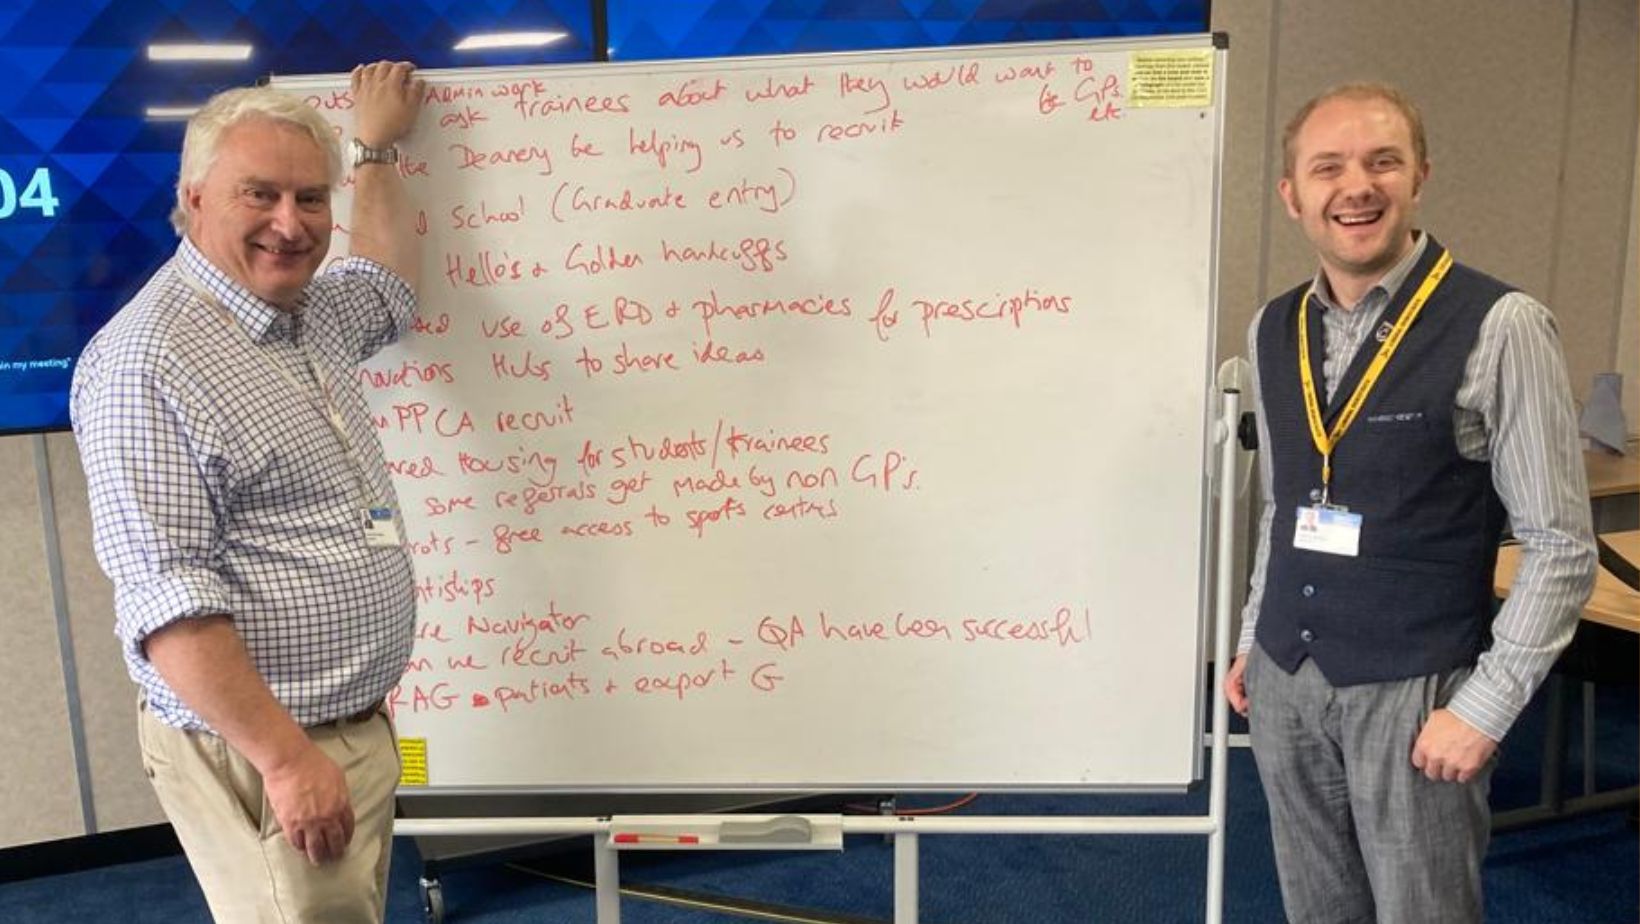 04
in my meeting"
outs Admin work
ask trainees about what they would want to
be GPs.
etc
the Deanery be helping us to recruit
School (Graduate entry)
Hello's + Golden handcuffs
sed use of ERD + pharmacies for prescriptions
novations Hubs to share ideas
PPCA recruit
ared Housing for students/trainees
some referrals get made by non GP's.
rots - free access to sports centres
ntiships
re Navigator
an we recruit abroad - QA have been successful
RAG patients + export G